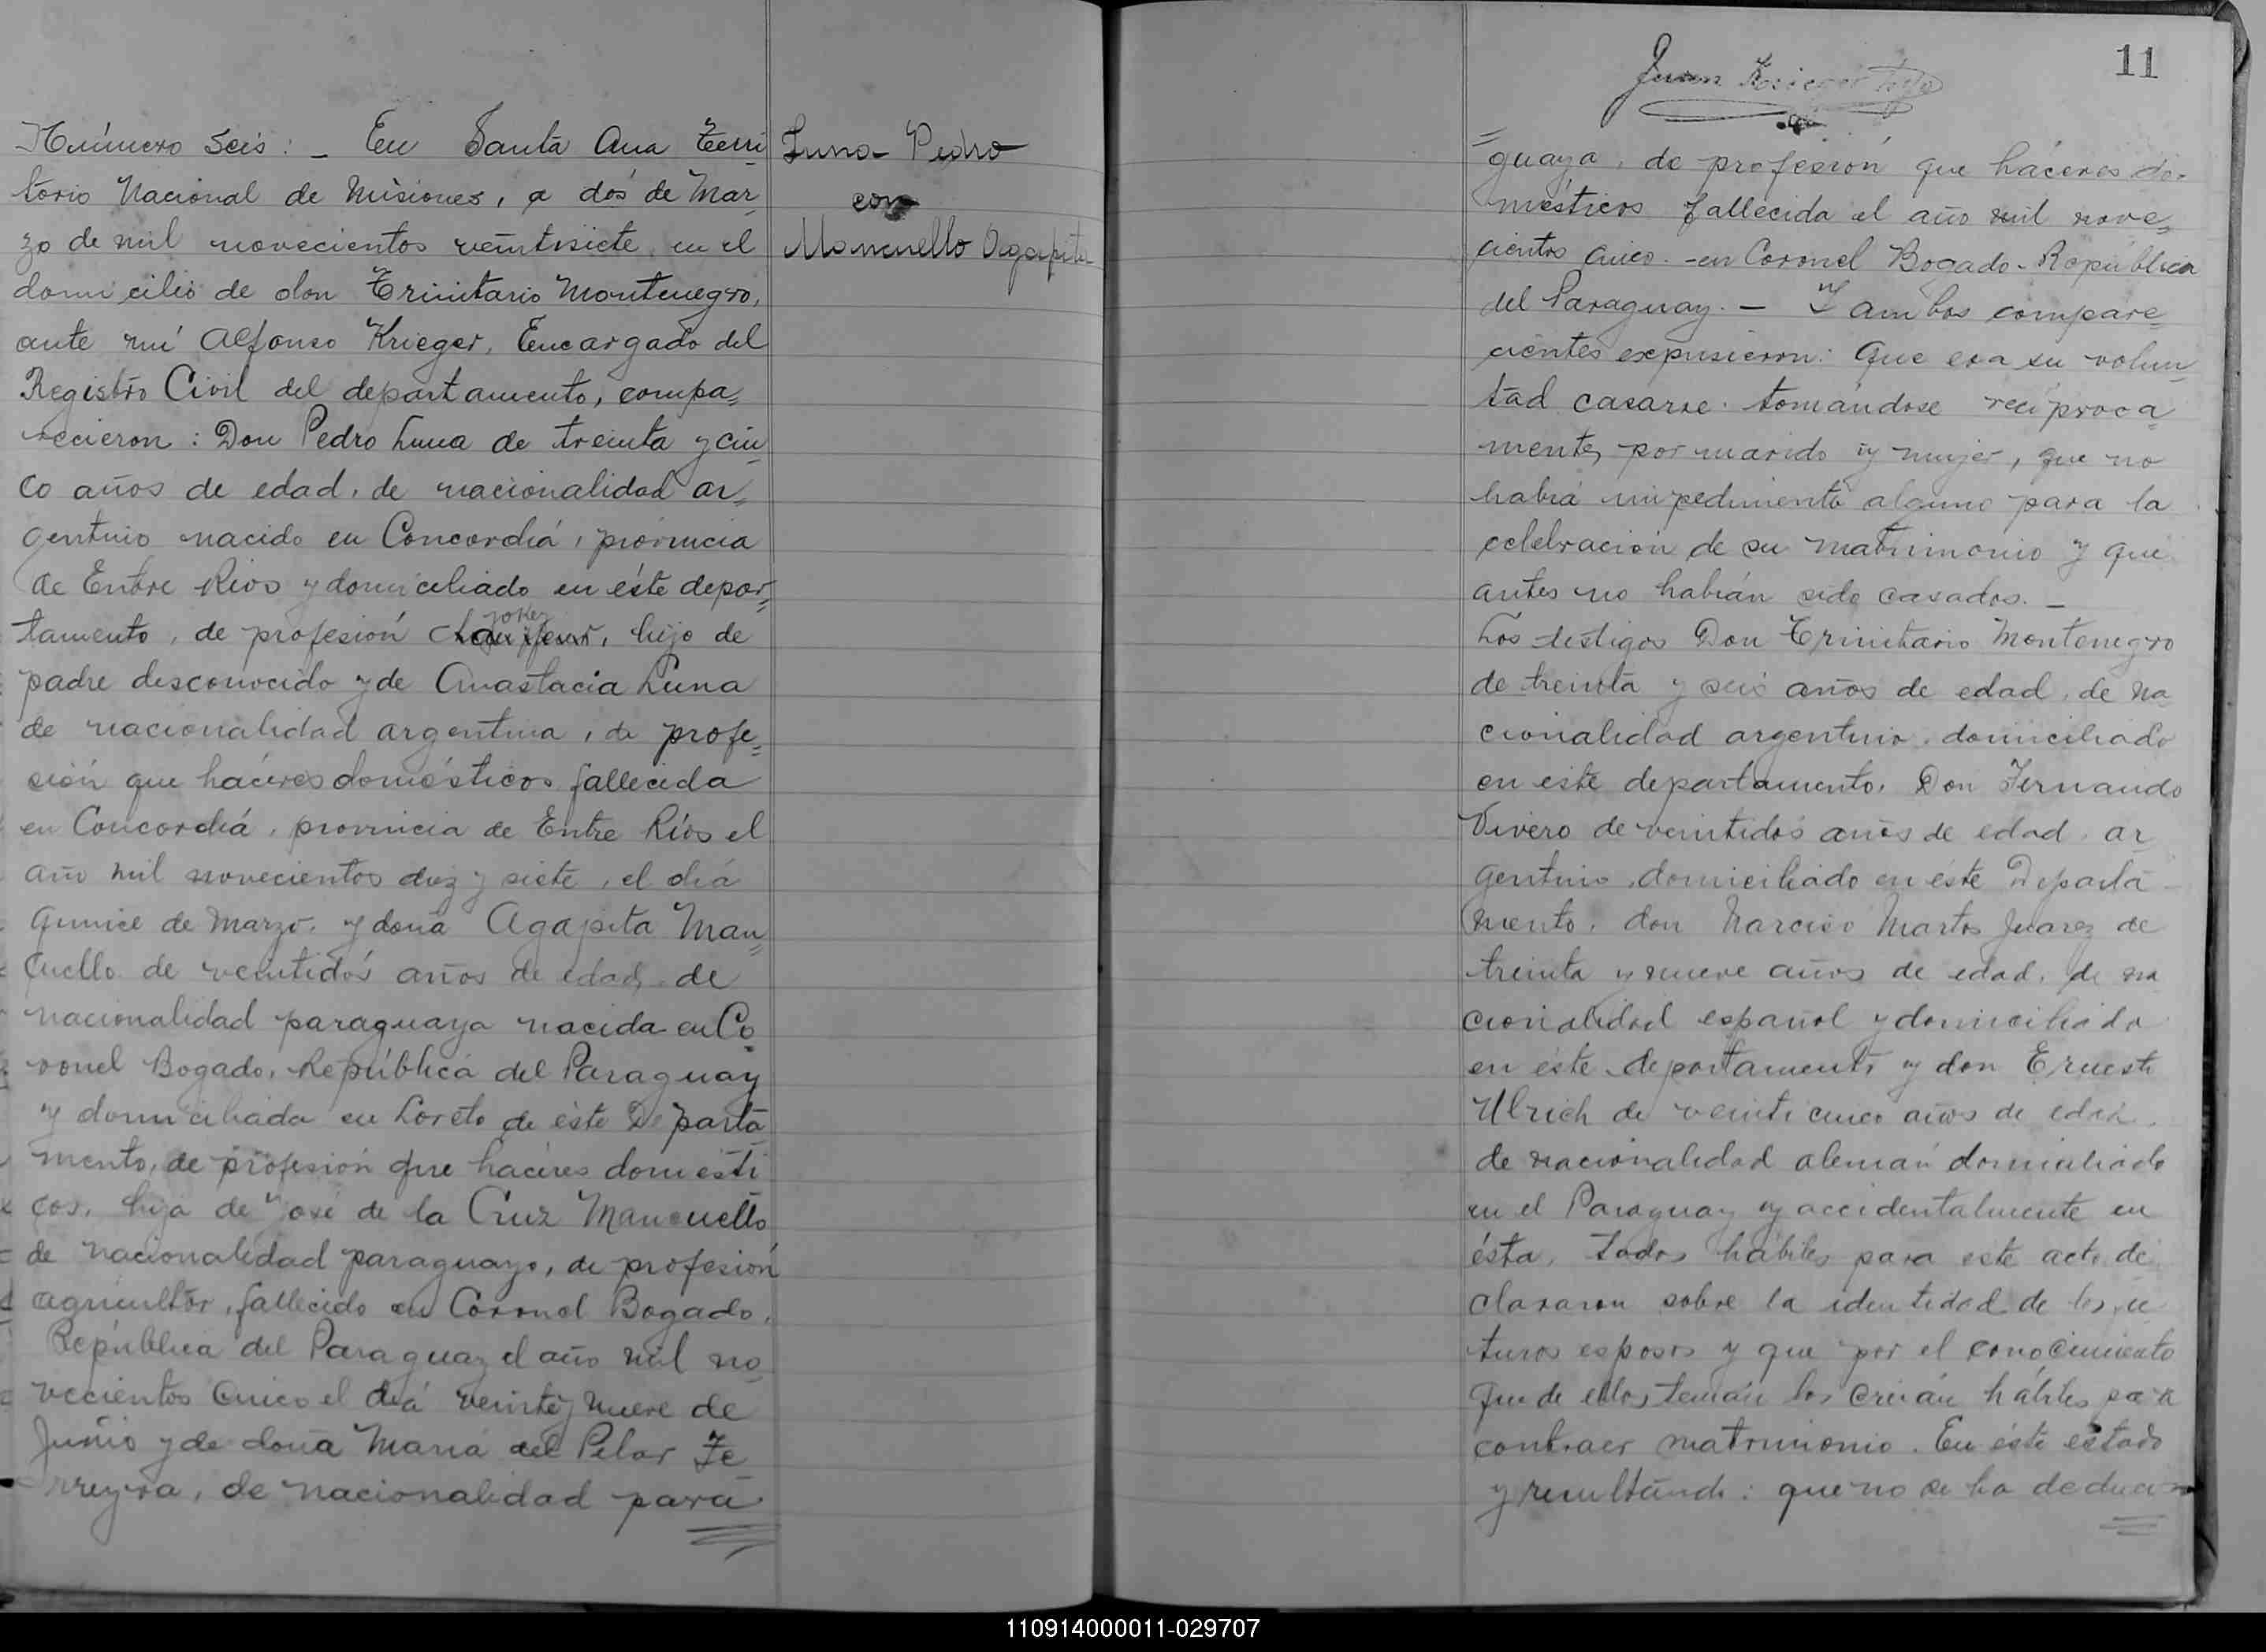 Número Seis: _ En Santa Ana Terri
torio Nacional de Misiones, a dos de Mar-
zo de mil novecientos veintisiete en el
domicilio de don Trinitario Montenegro,
ante mí Alfonso Krieger, Encargado del
Registro Civil del departamento, compa=
recieron: Don Pedro Luna de treinta y cin-
co años de edad, de nacionalidad ar=
gentino nacido en Concordiá, provincia
de Entre Rios y domiciliado en éste depar=
joker
tamento, de profesión chauffeur, hijo de
padre desconocido y de Anastacia Luna
de nacionalidad argentina, de profe=
sión que haceres domésticos fallecida
en Concordiá, provincia de Entre Ríos el
año mil novecientos diez y siete, el diá
quince de Marzo, y doña Agapita Man=
cuello de veintidós años de edad, de
nacionalidad paraguaya nacida en Co-
ronel Bogado, República del Paraguay
y domiciliada en Loreto de éste Departa-
mento, de profesión que haceres domésti-
cos, hija de José de la Cruz Mancuello
de nacionalidad paraguayo, de profesión
agricultor, fallecido en Coronel Bogado,
República del Paraguay el año mil no-
vecientos cinco el diá veinte y nueve de
Junio y de doña Maria del Pilar Fe-
rreyra, de nacionalidad para=
Luna Pedro
con
Mancuello Agapita
11
Juan
=guaya, de profesión que háceres do-
mésticos fallecida el año mil nove=
cientos cinco. -en Coronel Bogado-República
del Paraguay. — Y ambos compare=
cientes expusieron: Que era su volun-
tad casarse tomándose reciproca=
mente, por marido y mujer, que no
habiá impedimento alguno para la
celebración de su matrimonio y que
antes no habián sido casados. _
Los testigos Don Trinitario Montenegro
de treinta y seis años de edad, de na
cionalidad argentino, domiciliado
en este departamento, Don Fernando
Vivero de veintidós años de edad, ar
gentino, domiciliado en éste Departa-
mento, don Narciso Martos Juarez de
treinta y nueve años de edad, de na
cionalidad español y domiciliado
en éste departamento y don Ernesto
Ulrich de veinticinco años de edad,
de nacionalidad alemán domiciliado
en el Paraguay y accidentalmente en
ésta, todos hábiles para este acto de-
clararon sobre la identidad de los fu
turos esposos y que por el conocimiento
que de ellos tenián los creián hábiles para
contraer matrimonio. En éste estado
y resultando: que no se ha deduci=
110914000011-029707